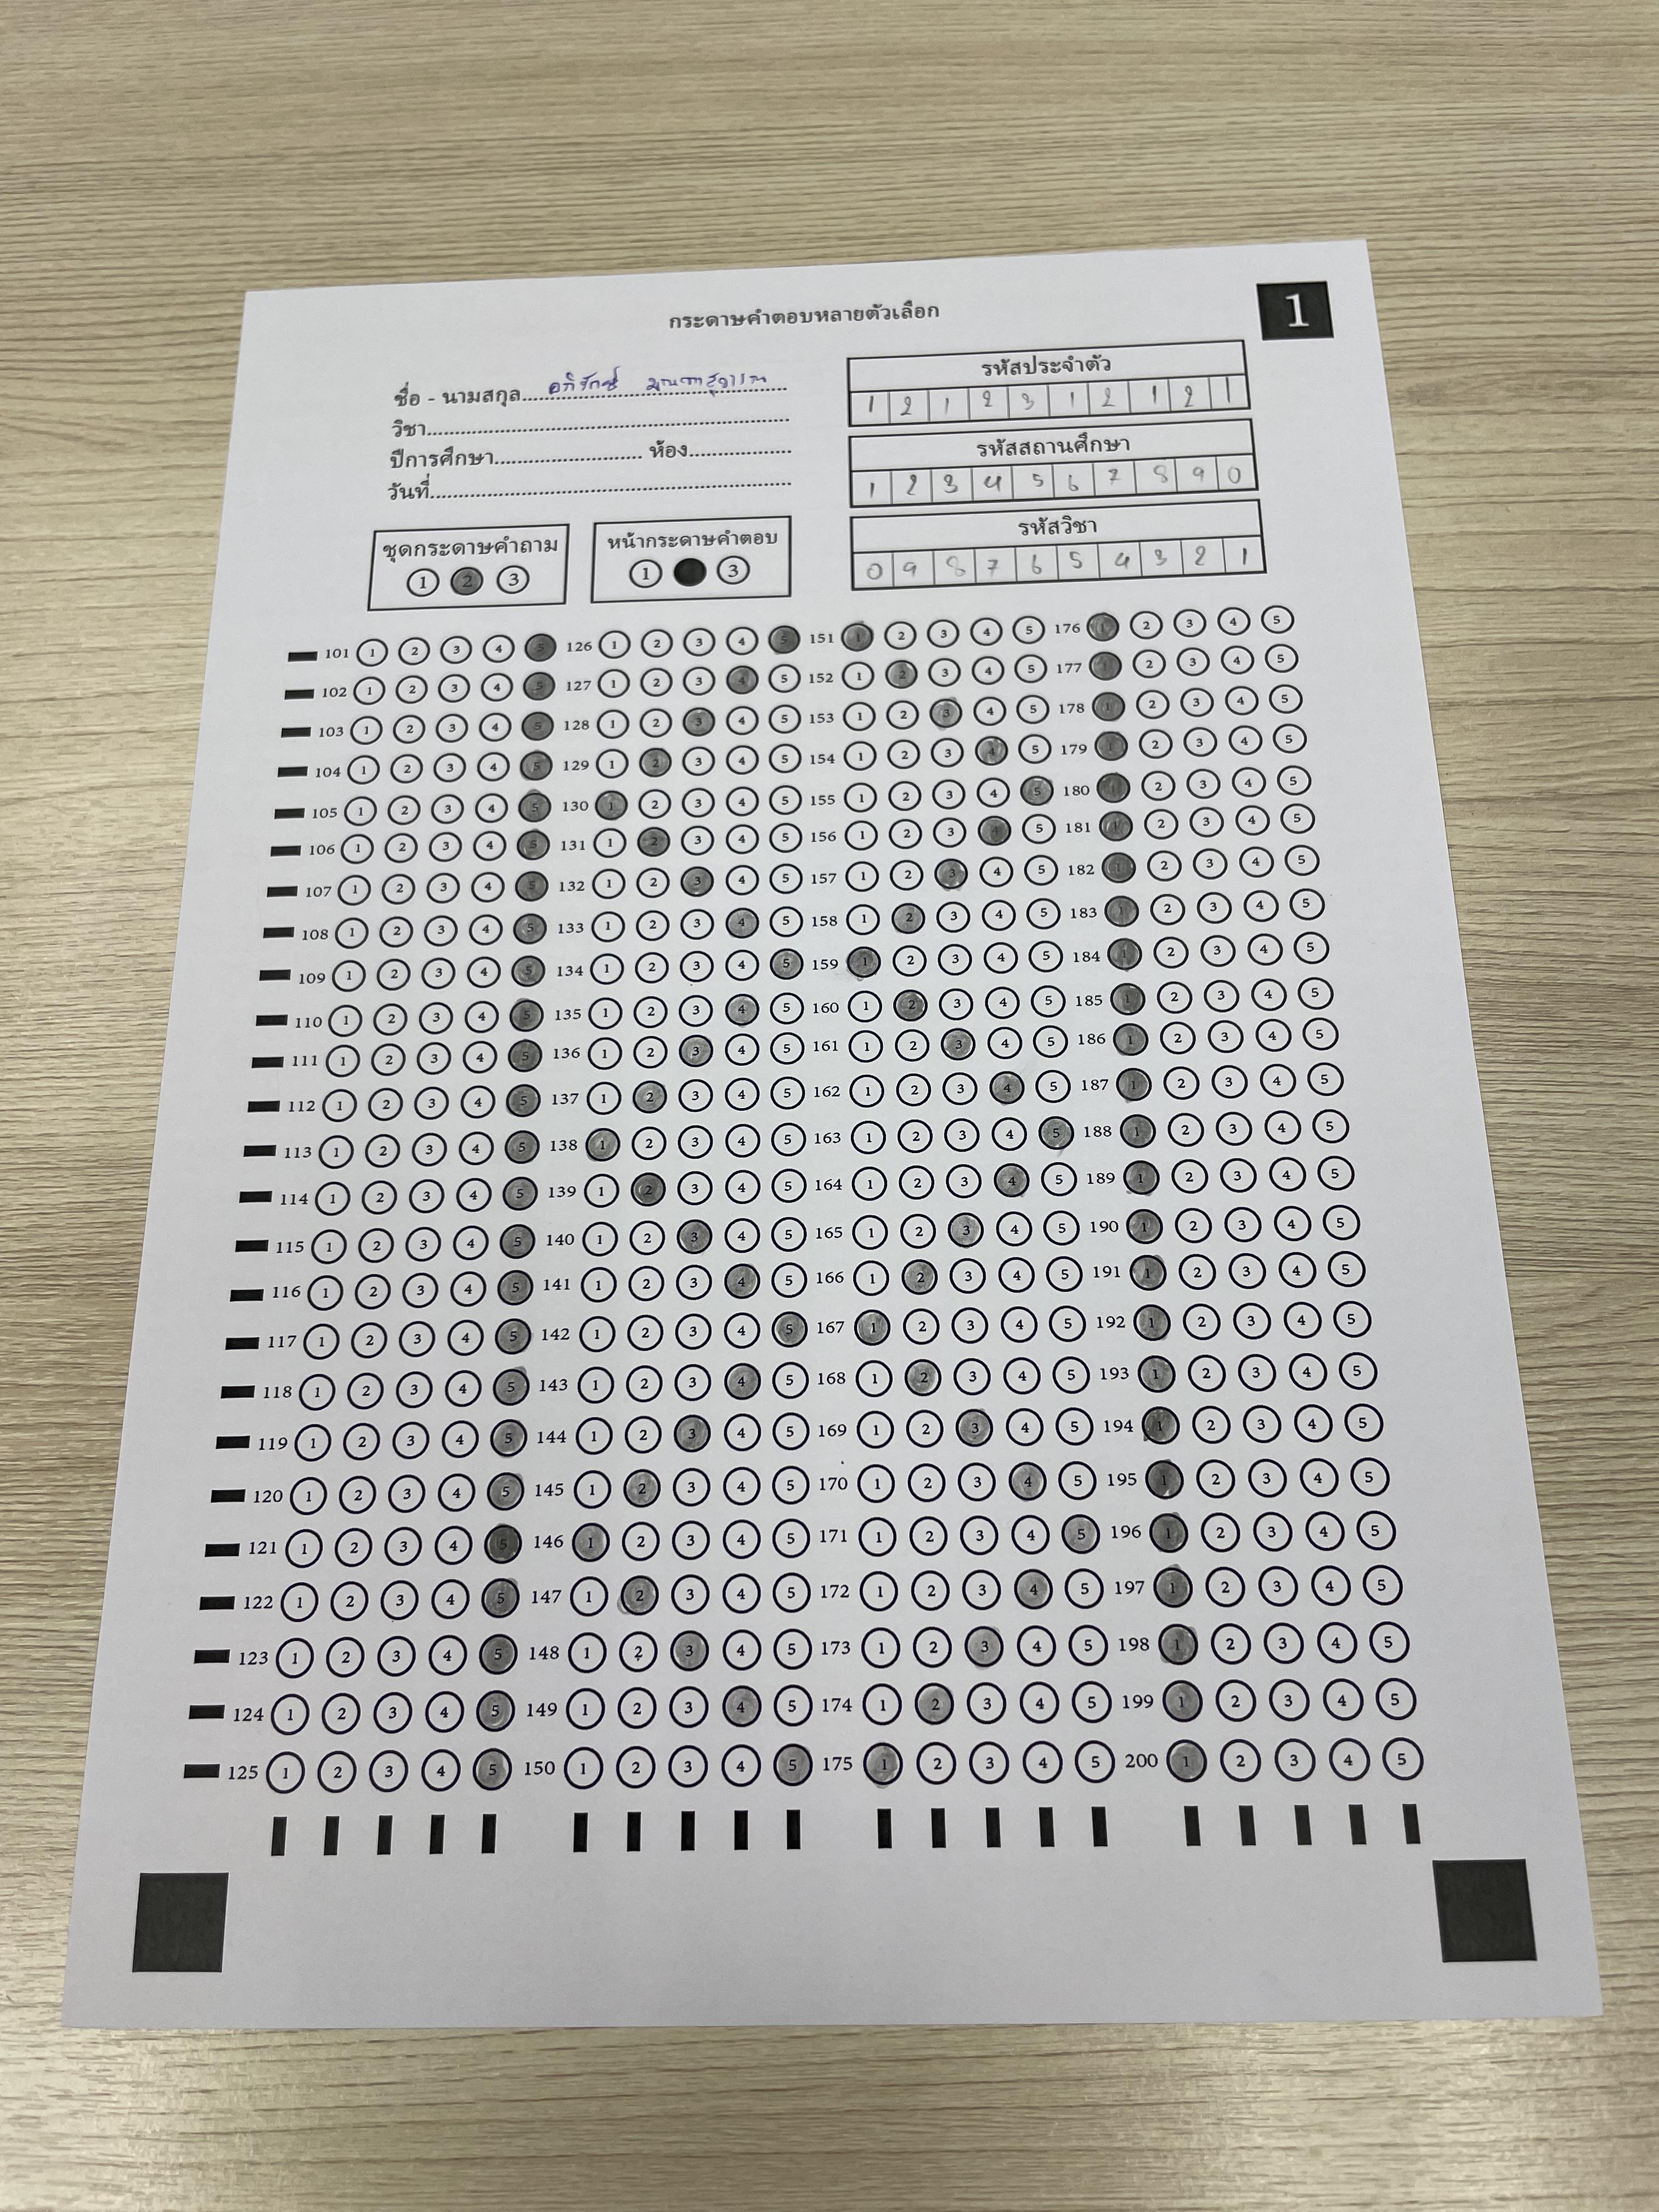 กระดาษคำตอบหลายตัวเลือก
1
ชื่อ - นามสกุล อภิรักษ์
วิชา
ปีการศึกษา ห้อง
วันที่
รหัสประจำตัว
1 2 1 2 3 1 2 1 2 1
รหัสสถานศึกษา
1 2 3 4 5 6 7 8 9 0
รหัสวิชา
0 9 8 7 6 5 4 3 2 1
ชุดกระดาษคำถาม
1 2 3
หน้ากระดาษคำตอบ
1 3
101 1 2 3 4 5 126 1 2 3 4 5 151 1 2 3 4 5 176 1 2 3 4 5
102 1 2 3 4 5 127 1 2 3 4 5 152 1 2 3 4 5 177 1 2 3 4 5
103 1 2 3 4 5 128 1 2 3 4 5 153 1 2 3 4 5 178 1 2 3 4 5
104 1 2 3 4 5 129 1 2 3 4 5 154 1 2 3 4 5 179 1 2 3 4 5
105 1 2 3 4 5 130 1 2 3 4 5 155 1 2 3 4 5 180 1 2 3 4 5
106 1 2 3 4 5 131 1 2 3 4 5 156 1 2 3 4 5 181 1 2 3 4 5
107 1 2 3 4 5 132 1 2 3 4 5 157 1 2 3 4 5 182 1 2 3 4 5
108 1 2 3 4 5 133 1 2 3 4 5 158 1 2 3 4 5 183 1 2 3 4 5
109 1 2 3 4 5 134 1 2 3 4 5 159 1 2 3 4 5 184 1 2 3 4 5
110 1 2 3 4 5 135 1 2 3 4 5 160 1 2 3 4 5 185 1 2 3 4 5
111 1 2 3 4 5 136 1 2 3 4 5 161 1 2 3 4 5 186 1 2 3 4 5
112 1 2 3 4 5 137 1 2 3 4 5 162 1 2 3 4 5 187 1 2 3 4 5
113 1 2 3 4 5 138 1 2 3 4 5 163 1 2 3 4 5 188 1 2 3 4 5
114 1 2 3 4 5 139 1 2 3 4 5 164 1 2 3 4 5 189 1 2 3 4 5
115 1 2 3 4 5 140 1 2 3 4 5 165 1 2 3 4 5 190 1 2 3 4 5
116 1 2 3 4 5 141 1 2 3 4 5 166 1 2 3 4 5 191 1 2 3 4 5
117 1 2 3 4 5 142 1 2 3 4 5 167 1 2 3 4 5 192 1 2 3 4 5
118 1 2 3 4 5 143 1 2 3 4 5 168 1 2 3 4 5 193 1 2 3 4 5
119 1 2 3 4 5 144 1 2 3 4 5 169 1 2 3 4 5 194 1 2 3 4 5
120 1 2 3 4 5 145 1 2 3 4 5 170 1 2 3 4 5 195 1 2 3 4 5
121 1 2 3 4 5 146 1 2 3 4 5 171 1 2 3 4 5 196 1 2 3 4 5
122 1 2 3 4 5 147 1 2 3 4 5 172 1 2 3 4 5 197 1 2 3 4 5
123 1 2 3 4 5 148 1 2 3 4 5 173 1 2 3 4 5 198 1 2 3 4 5
124 1 2 3 4 5 149 1 2 3 4 5 174 1 2 3 4 5 199 1 2 3 4 5
125 1 2 3 4 5 150 1 2 3 4 5 175 1 2 3 4 5 200 1 2 3 4 5